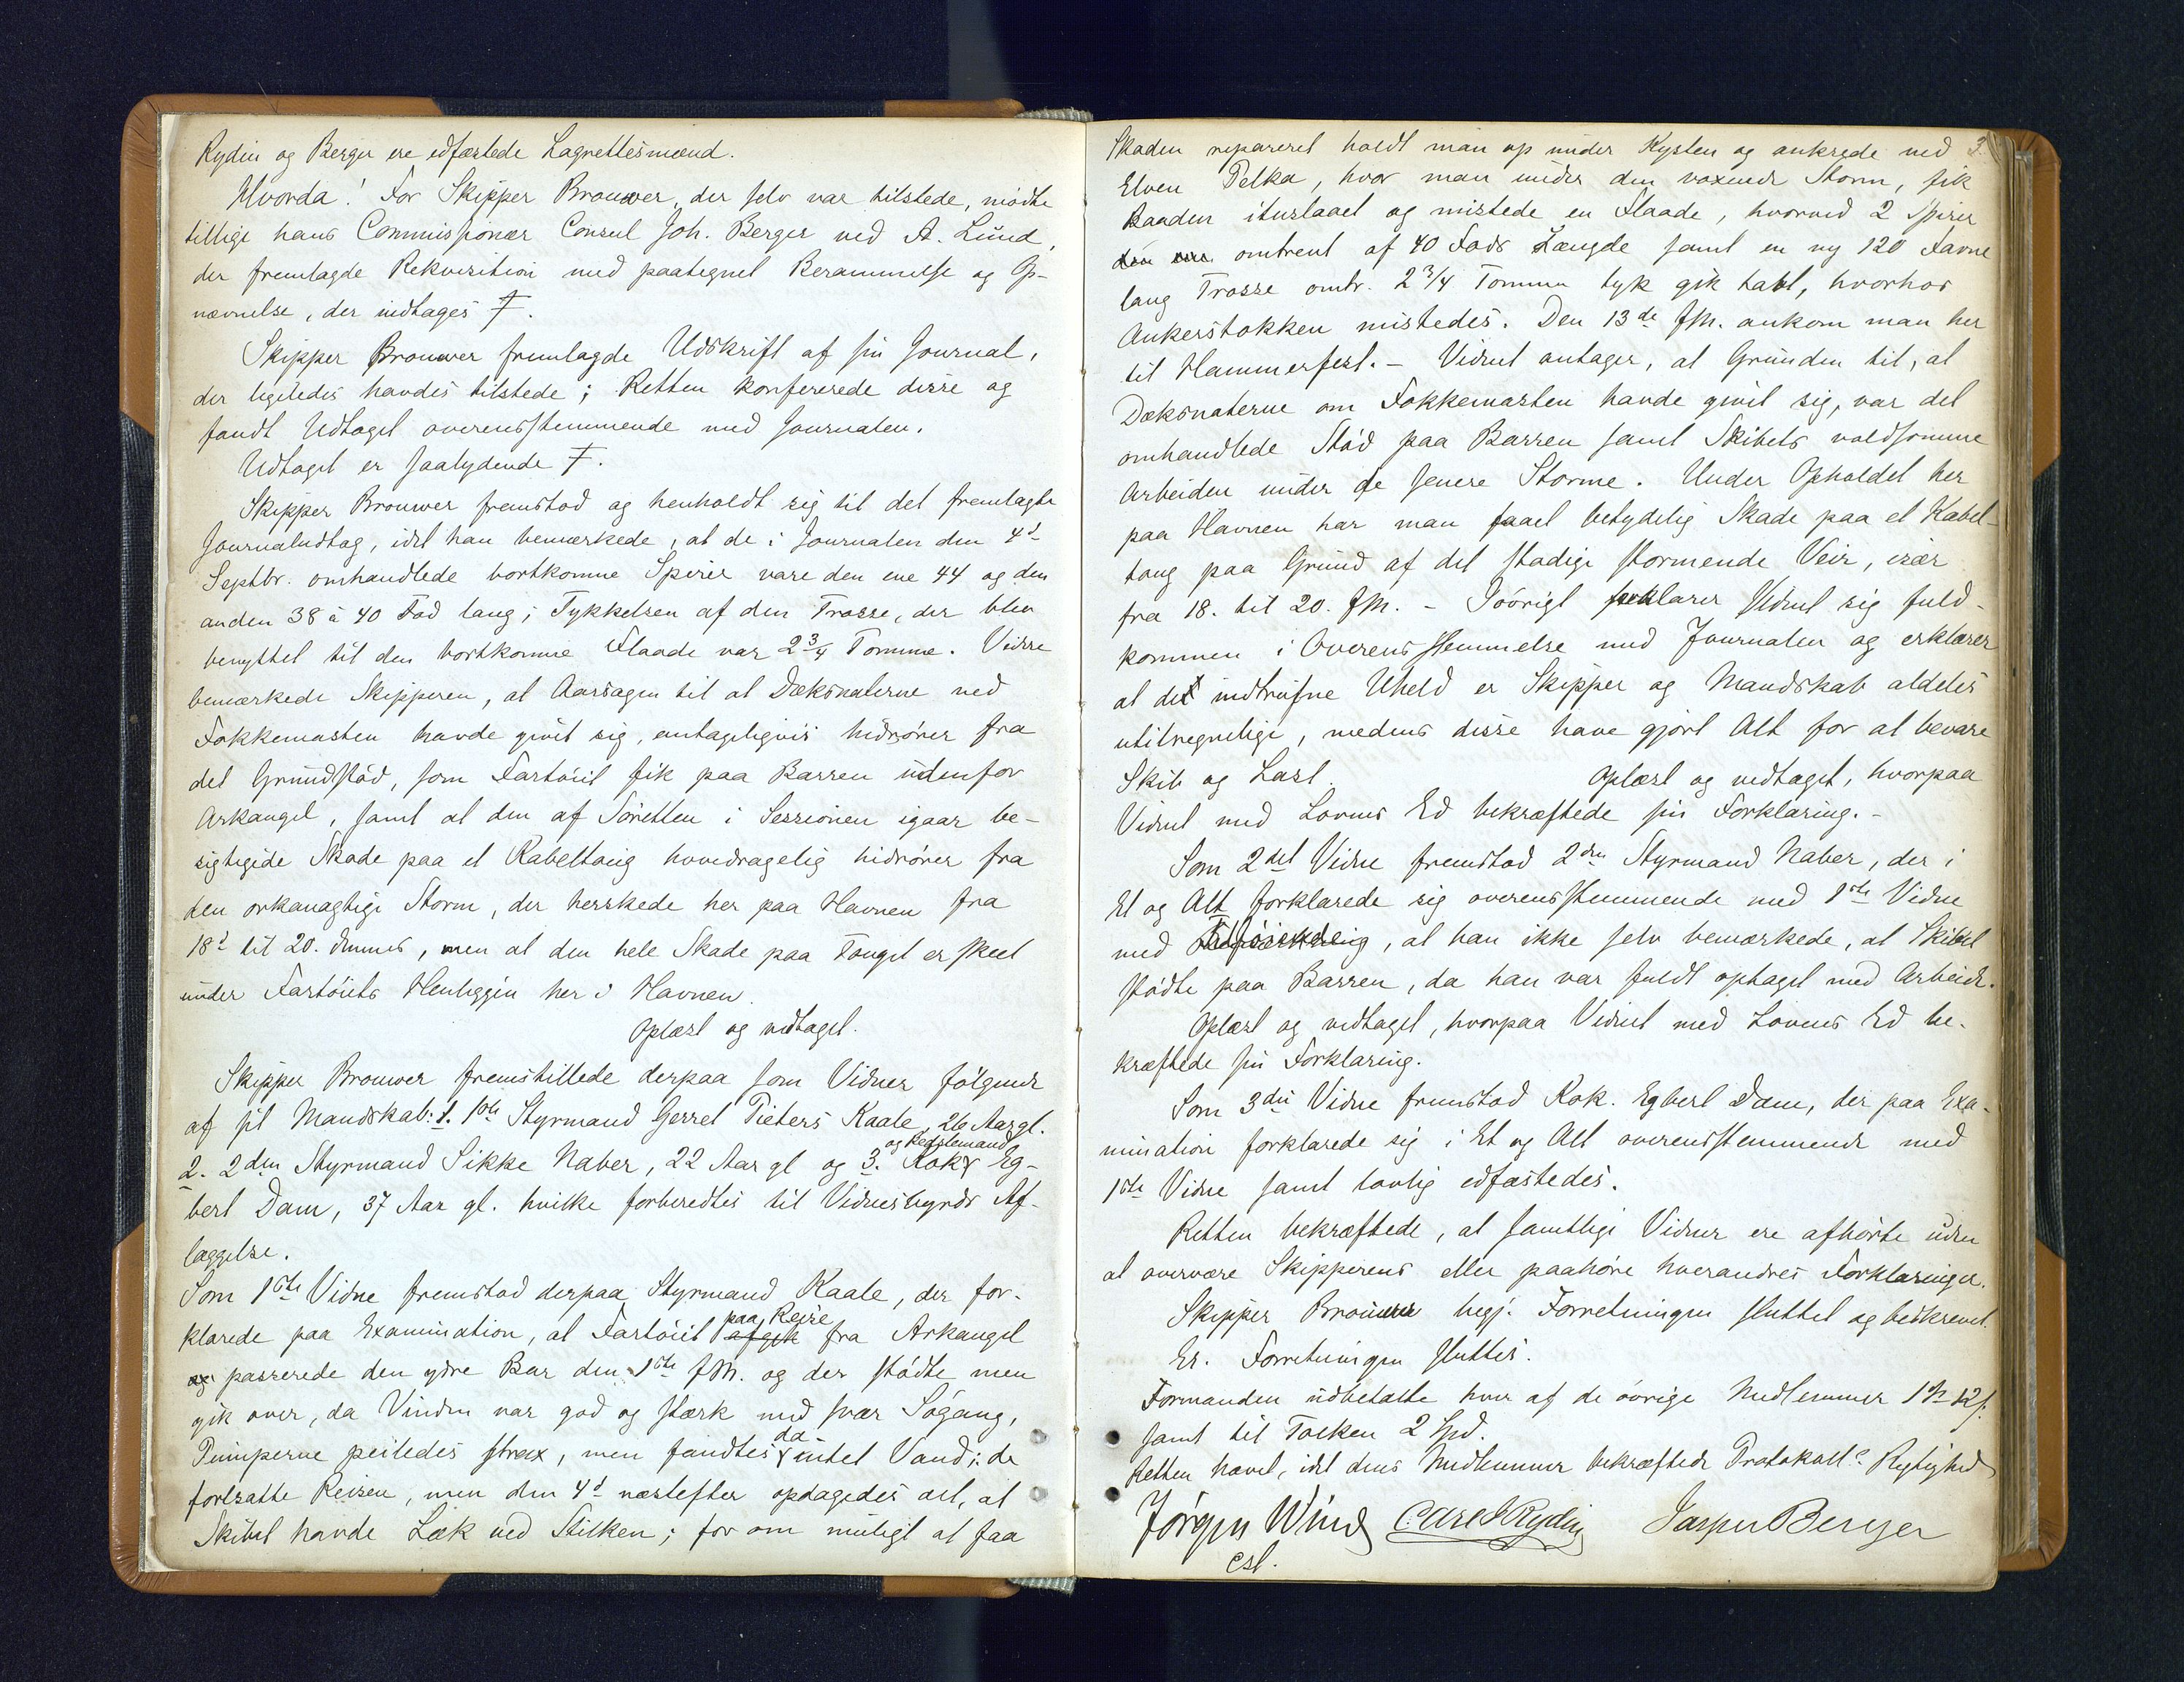 Rydin og Berger ere edfæstede Lagrettesmænd.
Hvorda! For Skipper Brouwer, der selv var tilstede, mødte
tillige hans Commissionær Consul Joh. Berger ved A. Lund,
der fremlagde Rekvisition med paategnet Berammelse og Op-
nævnelse, der indtages Ŧ.
Skipper Brouwer fremlagde Udskrift af sin Journal,
der ligeledes havdes tilstede; Retten konfererede disse og
fandt Udtaget overensstemmende med Journalen.
Udtaget er saalydende Ŧ.
Skipper Brouwer fremstod og henholdt sig til det fremlagte
Journaludtag, idet han bemærkede, at de i Journalen den 4d
Septbr. omhandlede bortkomne Spirer vare den ene 44 og den
anden 38 à 40 Fod lang; Tykkelsen af den Trosse, der blev
benyttet til den bortkomne Flaade var 2 3/4 Tomme. Videre
bemærkede Skipperen, at Aarsagen til at Dæksnaterne ved
Fokkemasten havde givet sig, antageligvis hidrører fra
det Grundstød, som Fartøiet fik paa Barren udenfor
Arkangel, samt at den af Søretten i Sessionen igaar be-
sigtigede Skade paa et Kabeltoug hovedsagelig hidrører fra
den orkanagtige Storm, der herskede her paa Havnen fra
18d til 20. dennes, men at den hele Skade paa Touget er skeet
under Fartøiets Henliggen her i Havnen.
Oplæst og vedtaget.
Skipper Brouwer fremstillede derpaa som Vidner følgende
af sit Mandskab: 1. 1ste Styrmand Gerret Pieters Kaale, 26 Aar gl.
og Bedstemand
2. 2den Styrmand Sikke Naber, 22 Aar gl og 3. Kok Eg-
bert Dam, 37 Aar gl. hvilke forberedtes til Vidnesbyrds Af-
læggelse.
Som 1ste Vidne fremstod derpaa Styrmand Kaale, der for-
paa Reise
klarede paa Examination, at Fartøiet afgik fra Arkangel
og passerede den ydre Bar den 1ste f.M. og der stødte men
gik over, da Vinden var god og stærk med svær Søgang,
da
Pumperne peiledes strax, men fandtes intet Vand; de
fortsatte Reisen, men den 4d næstefter opdagedes det, at
Skibet havde Læk ved Stilken; for om muligt at faa
3.
Skaden repareret holdt man op under Kysten og ankrede ved
Elven Pelka, hvor man under den voxende Storm, fik
Baaden iturslaaet og mistede en Flaade, hvorved 2 Spirer
omtrent af 40 Fods Længde samt en ny 120 Favne
lang Trosse omtr. 2 3/4 Tomme tyk gik tabt, hvorhos
Ankerstokken mistedes. Den 13de f.M. ankom man her
til Hammerfest. – Vidnet antager, at Grunden til, at
Dæksnaterne om Fokkemasten havde givet sig, var det
omhandlede Stød paa Barren samt Skibets voldsomme
Arbeiden under de senere Storme. Under Opholdet her
paa Havnen har man faaet betydelig Skade paa et Kabel-
toug paa Grund af det stadige stormende Veir, især
fra 18. til 20. f.M. – Iøvrigt forklarer Vidnet sig fuld-
kommen i Overensstemmelse med Journalen og erklærer
at det indtrufne Uheld er Skipper og Mandskab aldeles
utilregnelige, medens disse have gjort Alt for at bevare
Skib og Last. Oplæst og vedtaget, hvorpaa
Vidnet med Lovens Ed bekræftede sin Forklaring. –
Som 2det Vidne fremstod 2den Styrmand Naber, der i
Et og Alt forklarede sig overensstemmende med 1ste Vidne
med , at han ikke selv bemærkede, at Skibet
stødte paa Barren, da han var fuldt optaget med Arbeide.
Oplæst og vedtaget, hvorpaa Vidnet med Lovens Ed be-
kræftede sin Forklaring.
Som 3die Vidne fremstod Kok. Egbert Dam, der paa Exa-
mination forklarede sig i Et og Alt overensstemmende med
1ste Vidne samt lovlig edfæstedes.
Retten bekræftede, at samtlige Vidner ere afhørte uden
at overvære Skipperens eller paahøre hverandres Forklaringer.
Skipper Brouwer begj. Forretningen sluttet og beskrevet.
Er. Forretningen sluttes.
Formanden udbetalte hver af de øvrige Medlemmer 1 ₰ 12 s.
samt til Tolken 2 Spd.
Retten hævet, idet dens Medlemmer bekræftede Protokoll's Rigtighed
Jørgen Wind Carel Rydin Jasper Berger
cst.